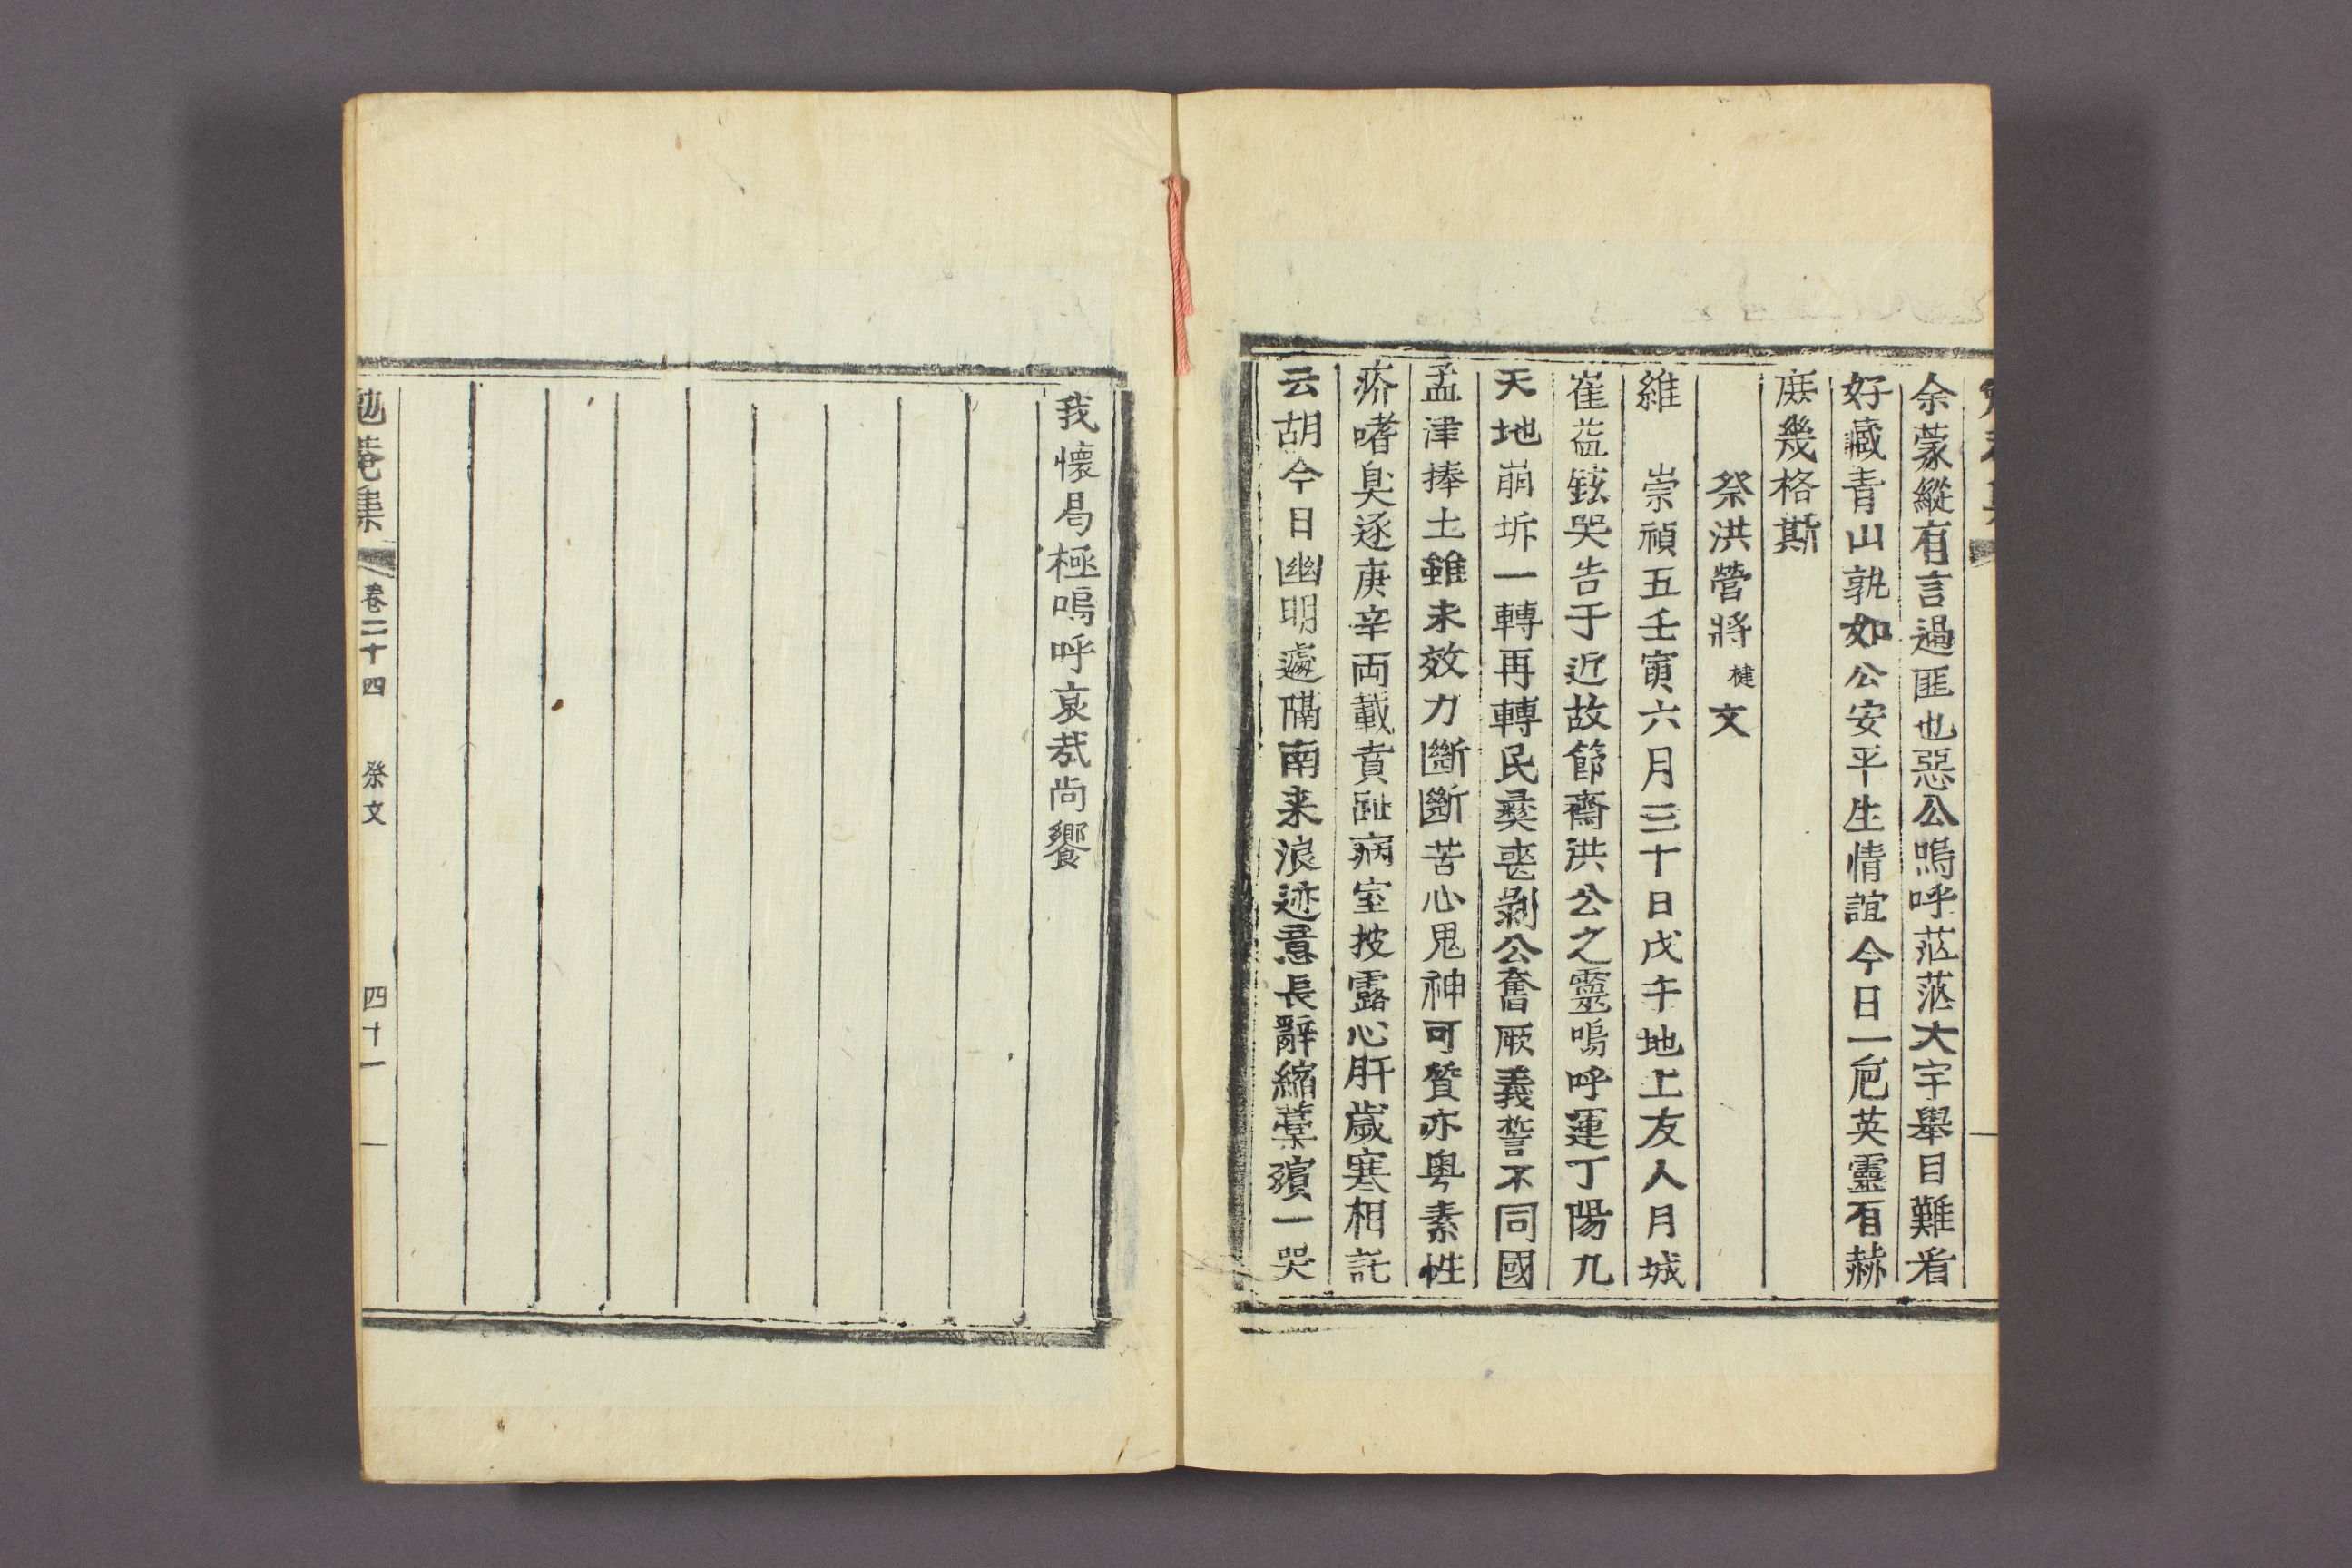 余蒙縱有言過匪也惡公嗚呼茫茫大宇舉目難看
好藏青山孰如公安平生情誼今日一巵英靈有赫
庶幾格斯
祭洪營將楗文
維 崇禎五壬寅六月三十日戊午地上友人月城
崔益鉉哭告于近故節齋洪公之靈嗚呼運丁陽九
天地崩坼一轉再轉民彛喪剝公奮厥義誓不同國
孟津捧土雖未效力斷斷苦心鬼神可質亦粤素性
疥嗜臭逐庚辛兩載賁趾病室披露心肝歲寒相託
云胡今日幽明遽隔南来浪迹意長辭縮藁殯一哭
我懷曷極嗚呼哀哉尚饗
勉菴集 卷二十四 祭文 四十一